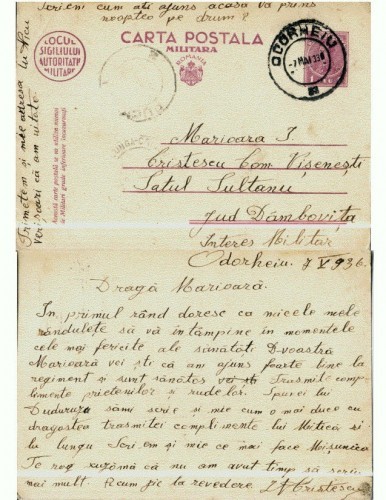 Scriem cum ati ajuns acasa va prins
noaptea pe drum?
LOCUL
SIGILIULUI
AUTORITATII
MILITARE
CARTA POSTALA
MILITARA
ROMANIA
ODORHEIU
7 MAI 936
Trimetem și mie adresa lu Nicu
Verișcari că am uitato
Marioara I.
Cristescu Com Vișenești
Satul Sultanu
Jud Dâmbovița
Interes Militar
Odorheiu. 7 V 936.
Dragă Marioară.
In primul rând doresc ca micele mele
rândulețe să vă întâmpine în momentele
cele mai fericite ale sănătăți D-voastră
Marioară voi ști că am ajuns foarte bine la
regiment și sunt sănătos Trasmite comp-
lemente prietenilor și rudelor. Spunei lui
Duduruza sâmi scrie și mie cum o mai duce cu
dragostea trasmitei complimente lui Mitică și
lu lungu Scriem și mie ce mai face Mișunica
Te rog scuzămă că nu am avut timp să scriu
mai mult. Acum zic la revedere I Cristescu